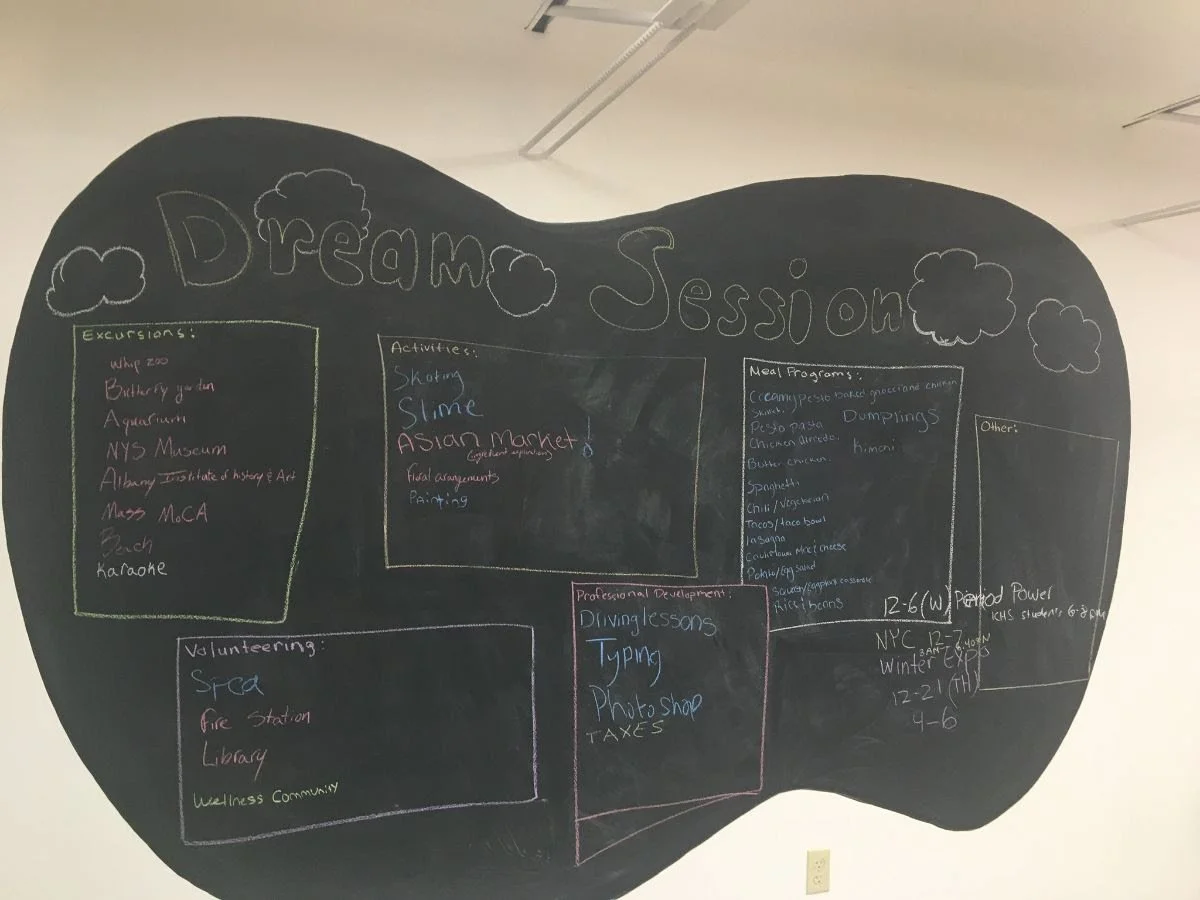 Dream Session
Excursions:
Whip zoo
Butterfly garden
Aquarium
NYS Museum
Albany Institute of history & Art
Mass MoCA
Beach
Karaoke
Activities:
Skating
Slime
ASIAN MARKET!
Floral arangements
Painting
Meal Programs:
Creamy pesto baked gnocci and chicken
Pesto pasta
Dumplings
Chicken alfredo
Kimchi
Butter chicken
Spaghetti
Chili/Vegetarian
Tacos/taco bowl
lasagna
Mac & cheese
Potato/Egg salad
Rice & beans
Other:
12-6 (W) Period Power
KHS students 6-8pm
NYC 12-7
Winter Expo
12-21 (TH)
4-6
Volunteering:
Spca
Fire Station
Library
Wellness Community
Professional Development:
Driving lessons
Typing
Photoshop
TAXES